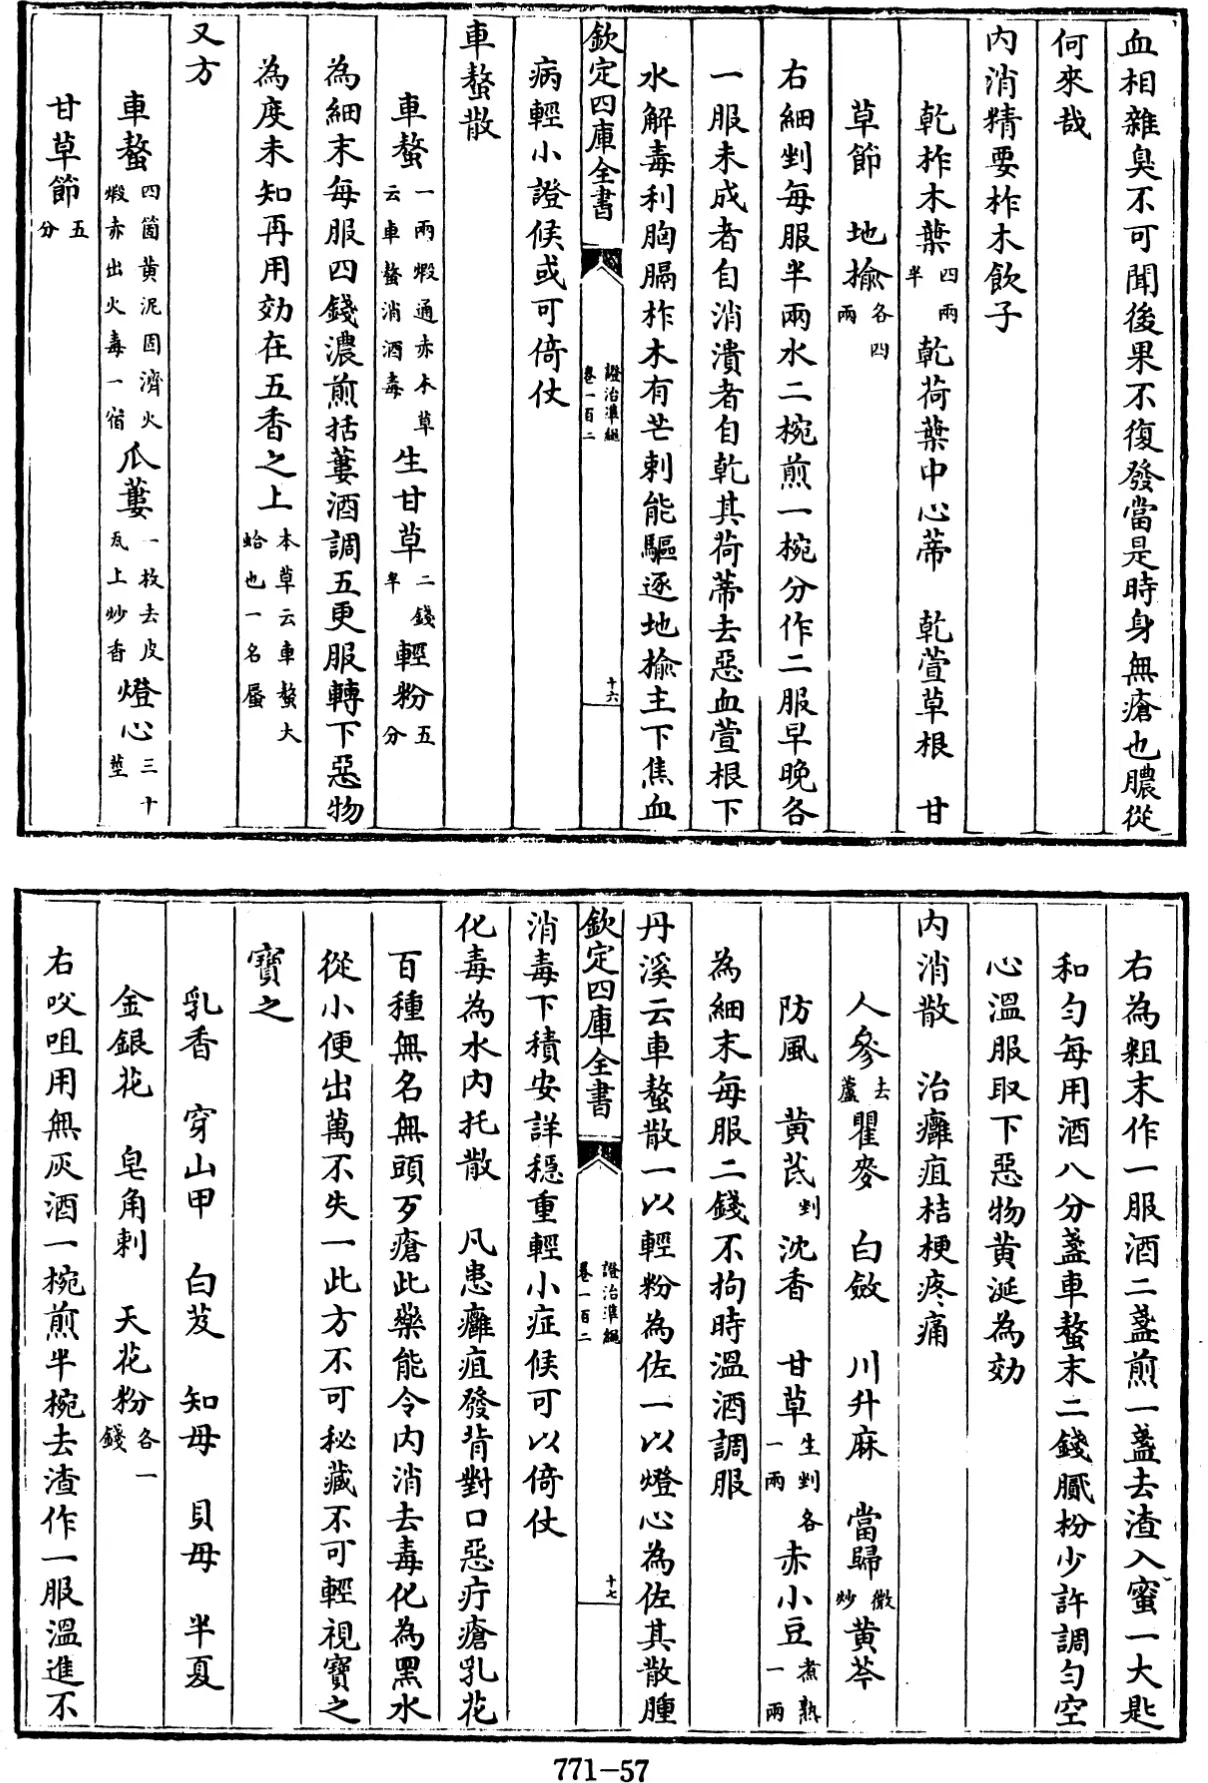 血相雜臭不可聞後果不復發當是時身無瘡也膿從
何來哉
内消精要柞木飲子
乾柞木葉四兩半 乾荷葉中心蒂 乾萱草根 甘
草節 地揄各四兩
右細剉每服半兩水二椀煎一椀分作二服早晚各
一服未成者自消潰者自乾其荷蒂去惡血萱根下
水解毒利胸膈柞木有芒刺能驅逐地揄主下焦血
欽定四庫全書 證治準繩 卷一百二 十六
病輕小證候或可倚仗
車螯散
車螯一兩煅通赤本草云車螯消酒毒 生甘草二錢半 輕粉五分
為細末每服四錢濃煎括蔞酒調五更服轉下惡物
為度未知再用効在五香之上本草云車螯大蛤也一名蜃
又方
車螯四箇黄泥固濟火煅赤出火毒一宿 瓜蔞一枚去皮瓦上炒香 燈心三十莖
甘草節五分
右為粗末作一服酒二盞煎一盞去渣入蜜一大匙
和匀每用酒八分盞車螯末二錢膩粉少許調匀空
心溫服取下惡物黄涎為効
内消散 治癰疽桔梗疼痛
人參去蘆 瞿麥 白斂 川升麻 當歸微炒 黄芩
防風 黄芪剉 沈香 甘草生剉各一兩 赤小豆煮熟一兩
為細末每服二錢不拘時溫酒調服
丹溪云車螯散一以輕粉為佐一以燈心為佐其散腫
欽定四庫全書 證治準繩 卷一百二 十七
消毒下積安詳穩重輕小症候可以倚仗
化毒為水内托散 凡患癰疽發背對口惡疔瘡乳花
百種無名無頭歹瘡此藥能令内消去毒化為黑水
從小便出萬不失一此方不可秘藏不可輕視寶之
寶之
乳香 穿山甲 白芨 知母 貝母 半夏
金銀花 皂角刺 天花粉各一錢
右㕮咀用無灰酒一椀煎半椀去渣作一服溫進不
771—57